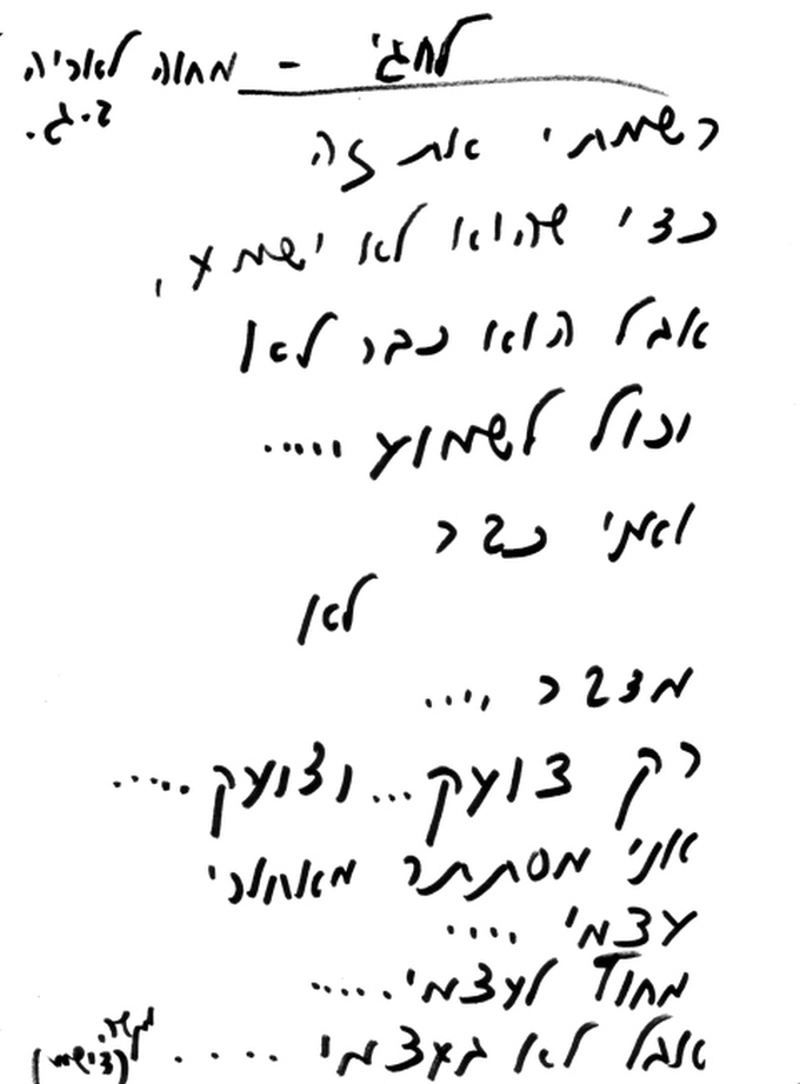 לחגי - מחוה לאריה
ב.ג.
רשמתי את זה
כדי שהוא לא ישמע,
אבל הוא כבר לא
יכול לשמוע .....
ואני כבר
לא
מדבר ....
רק צועק... וצועק .....
אני מסתתר מאחורי
עצמי ....
מחוץ לעצמי .....
אבל לא בעצמי ....